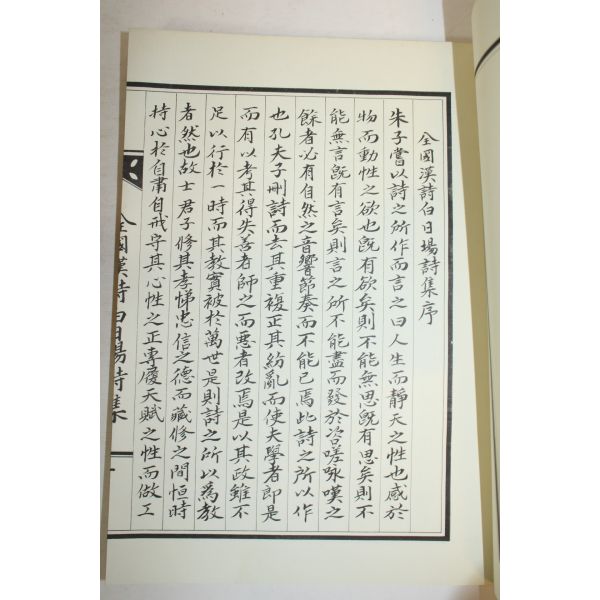 全國漢詩白日場詩集序
朱子嘗以詩之所作而言之曰人生而靜天之性也感於
物而動性之欲也旣有欲矣則不能無思旣有思矣則不
能無言旣有言矣則言之所不能盡而發於咨嗟咏嘆之
餘者必有自然之音響節奏而不能已焉此詩之所以作
也孔夫子刪詩而去其重複正其紛亂而使夫學者卽是
而有以考其得失善者師之而惡者改焉是以其政雖不
足以行於一時而其敎實被於萬世是則詩之所以爲敎
者然也故士君子修其孝悌忠信之德而藏修之間恒時
持心於自肅自戒守其心性之正專優天賦之性而做工
全國漢詩白日場詩集
一